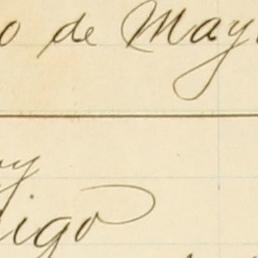 o de May
y
igo